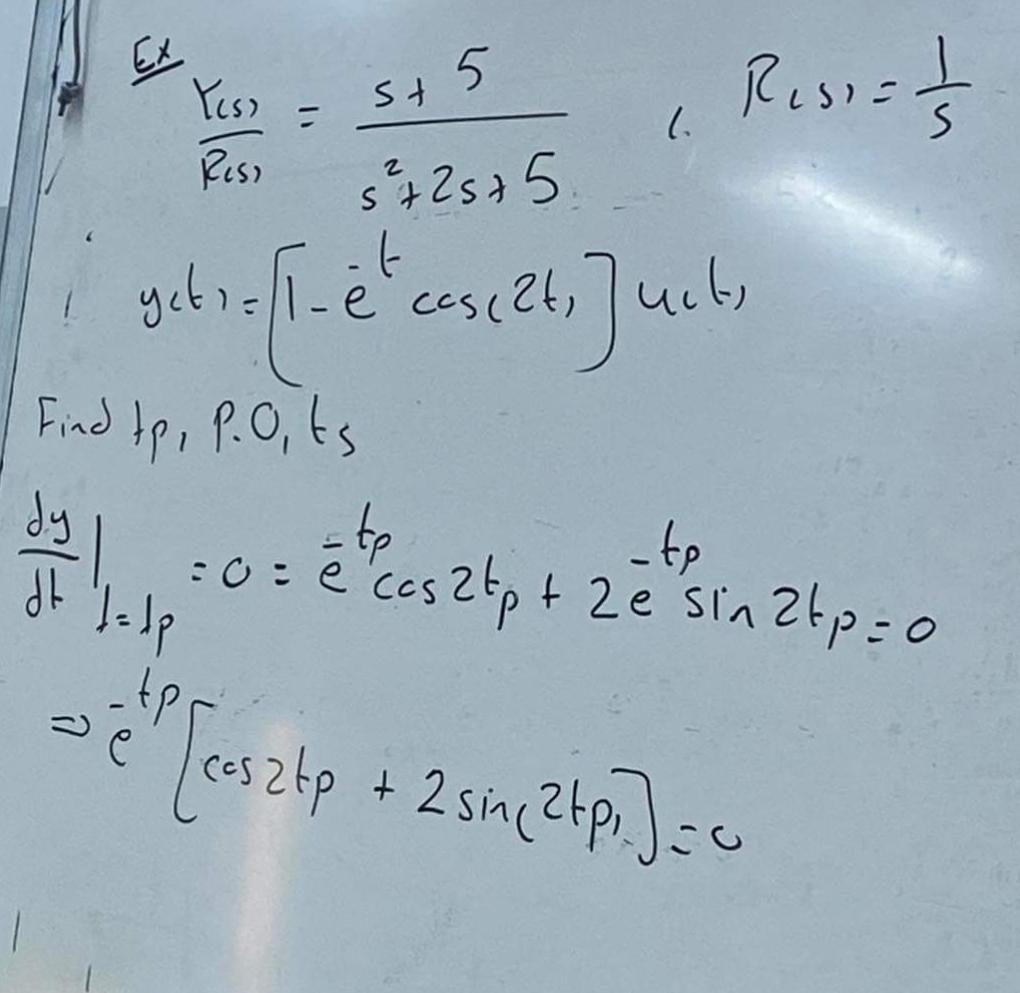 Ex
Y(s)/R(s) = (s+5)/(s²+2s+5) , R(s) = 1/s
y(t) = [1 - e^-t cos(2t)] u(t)
Find tp, P.O, ts
dy/dt |t=tp = 0 = e^-tp cos 2tp + 2e^-tp sin 2tp = 0
⇒ e^-tp [cos 2tp + 2 sin(2tp)] = 0